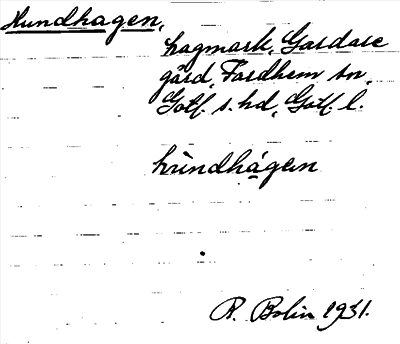 Hundhagen,
hagmark, Gardare
gård, Fardhem sn,
Gotl. s. hd, Gotl. l.
hùndhágen
R. Bolin 1931.